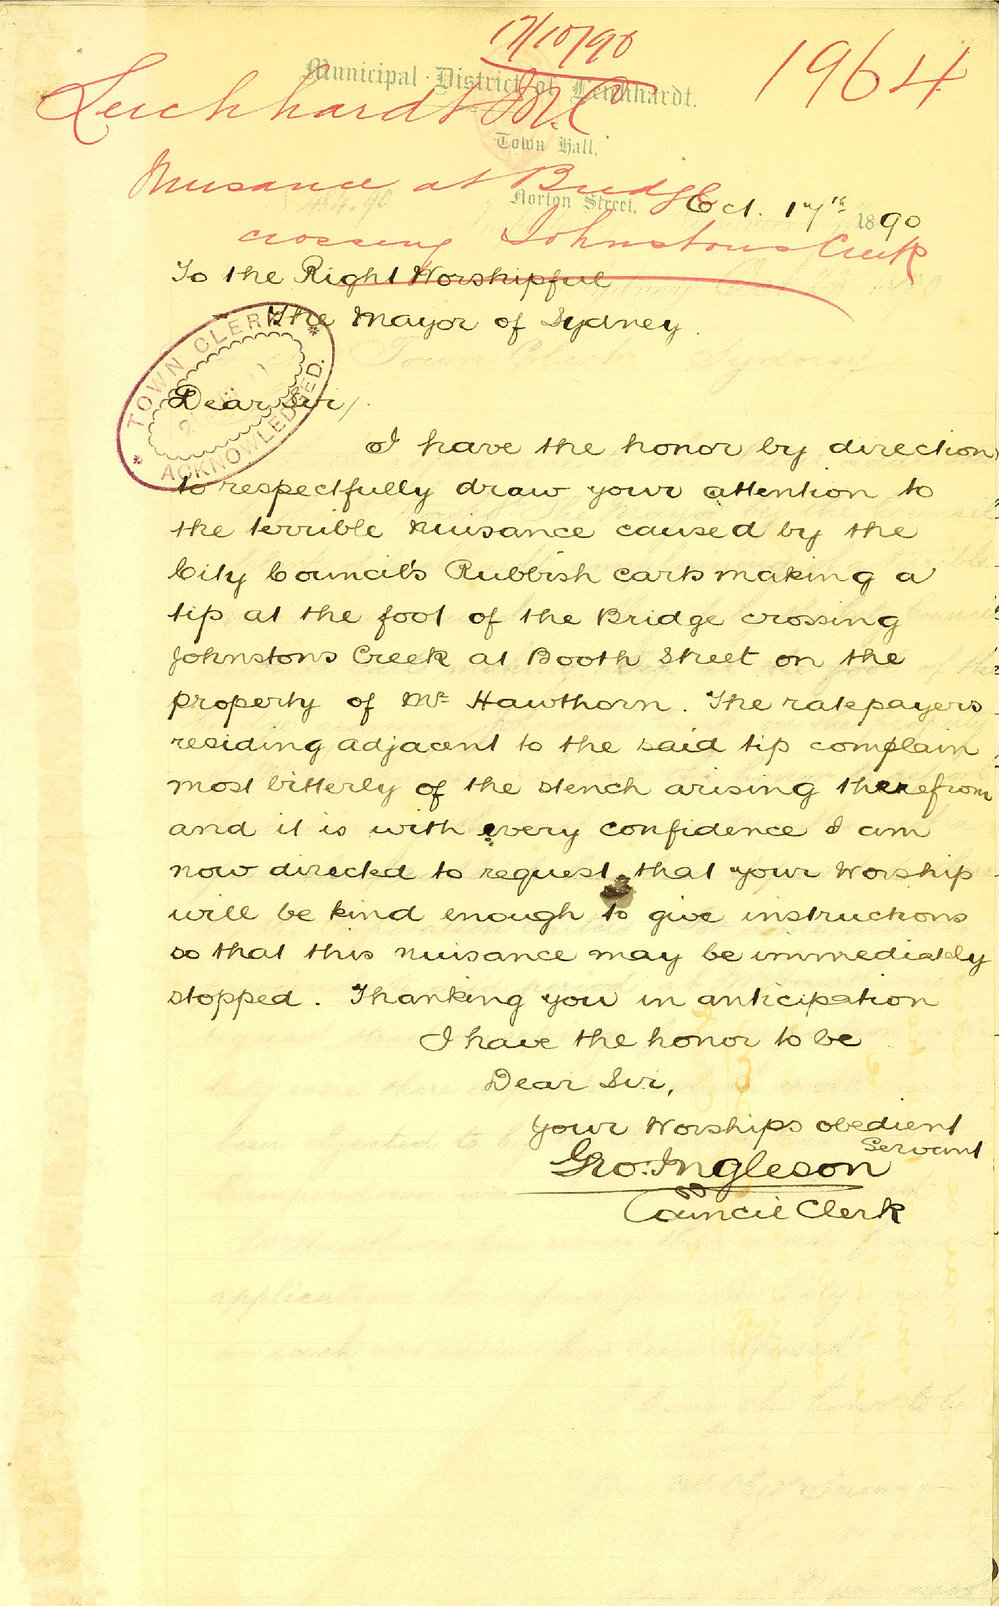 17/10/90
1964
Municipal District of Leichhardt.
Leichhardt M.C
Town Hall,
Nuisance at Bridge
Norton Street, Oct. 17th 1890
crossing Johnstons Creek
To the Right Worshipful
The Mayor of Sydney.
TOWN CLERK
ACKNOWLEDGED.
Dear Sir,
I have the honor by direction
to respectfully draw your attention to
the terrible nuisance caused by the
City Council's Rubbish carts making a
tip at the foot of the Bridge crossing
Johnstons Creek at Booth Street on the
property of Mr Hawthorn. The ratepayers
residing adjacent to the said tip complain
most bitterly of the stench arising therefrom
and it is with every confidence I am
now directed to request that your Worship
will be kind enough to give instructions
so that this nuisance may be immediately
stopped. Thanking you in anticipation
I have the honor to be
Dear Sir,
Your Worships obedient
Servant
Geo: Ingleson
Council Clerk